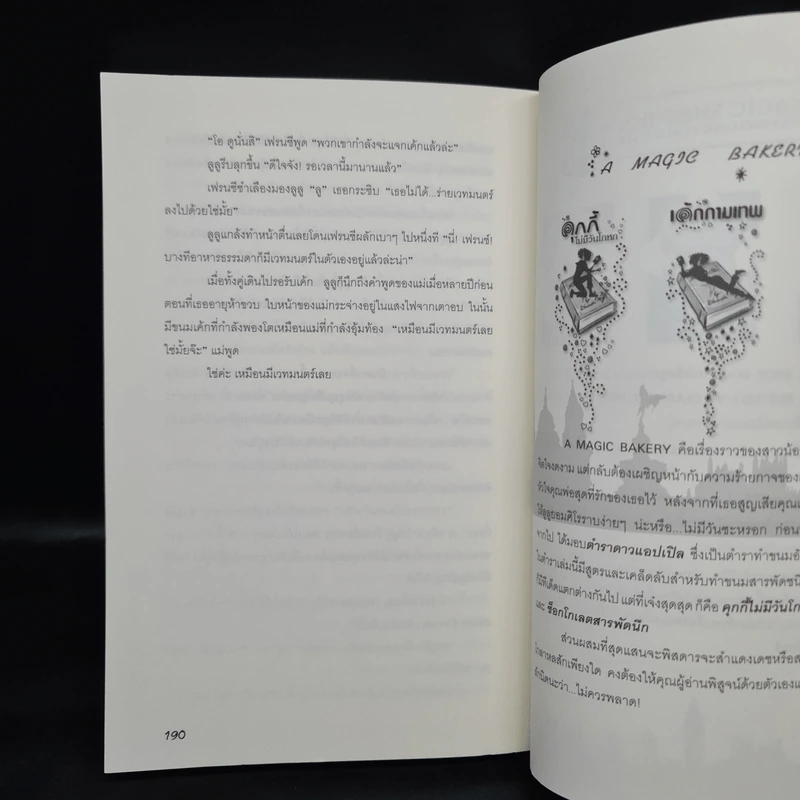 “โอ ดูนั่นสิ” เฟรนซีพูด “พวกเขากำลังจะแจกเค้กแล้วล่ะ”
ลูลูรีบลุกขึ้น “ดีใจจัง! รอเวลานี้มานานแล้ว”
เฟรนซีชำเลืองมองลูลู “ลู” เธอกระซิบ “เธอไม่ได้...ร่ายเวทมนตร์
ลงไปด้วยใช่มั้ย”
ลูลูแกล้งทำหน้าตื่นเลยโดนเฟรนซีผลักเบาๆ ไปหนึ่งที “นี่! เฟรนซ์!
บางทีอาหารธรรมดาก็มีเวทมนตร์ในตัวเองอยู่แล้วล่ะน่า”
เมื่อทั้งคู่เดินไปรอรับเค้ก ลูลูก็นึกถึงคำพูดของแม่เมื่อหลายปีก่อน
ตอนที่เธออายุห้าขวบ ใบหน้าของแม่กระจ่างอยู่ในแสงไฟจากเตาอบ ในนั้น
มีขนมเค้กที่กำลังพองโตเหมือนแม่ที่กำลังอุ้มท้อง “เหมือนมีเวทมนตร์เลย
ใช่มั้ยจ๊ะ” แม่พูด
ใช่ค่ะ เหมือนมีเวทมนตร์เลย
190
A MAGIC BAKERY
คุกกี้
ไม่มีวันโกหก
เค้กกามเทพ
A MAGIC BAKERY คือเรื่องราวของสาวน้อย
จิตใจงดงาม แต่กลับต้องเผชิญหน้ากับความร้ายกาจของ
หัวใจคุณพ่อสุดที่รักของเธอไว้ หลังจากที่เธอสูญเสียคุณ
ให้ลูลูยอมศิโรราบง่ายๆ น่ะหรือ...ไม่มีวันซะหรอก ก่อน
จากไป ได้มอบตำราดาวแอปเปิล ซึ่งเป็นตำราทำขนม
ในตำราเล่มนี้มีสูตรและเคล็ดลับสำหรับทำขนมสารพัดชนิ
ก็มีพิเด็ดแตกต่างกันไป แต่ที่เจ๋งสุดสุด ก็คือ คุกกี้ไม่มีวันโก
และ ช็อกโกเลตสารพัดนึก
ส่วนผสมที่สุดแสนจะพิสดารจะสำแดงเดชหรือส
อลหม่านสักเพียงใด คงต้องให้คุณผู้อ่านพิสูจน์ด้วยตัวเอง
นิดนะว่า...ไม่ควรพลาด!